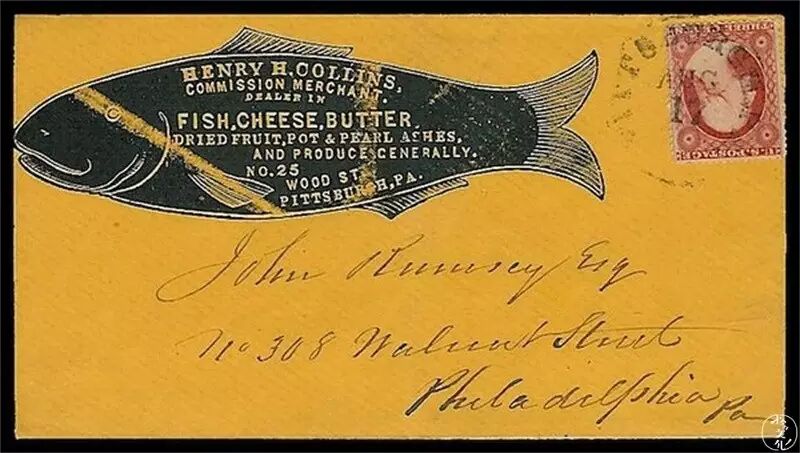 HENRY H. COLLINS,
COMMISSION MERCHANT.
DEALER IN
FISH, CHEESE, BUTTER,
DRIED FRUIT, POT & PEARL ASHES,
AND PRODUCE GENERALLY.
NO. 25
WOOD ST
PITTSBURGH, PA.
AUG
U.S. POSTAGE
John Rumsey Esq
No 308 Walnut Street
Philadelphia Pa